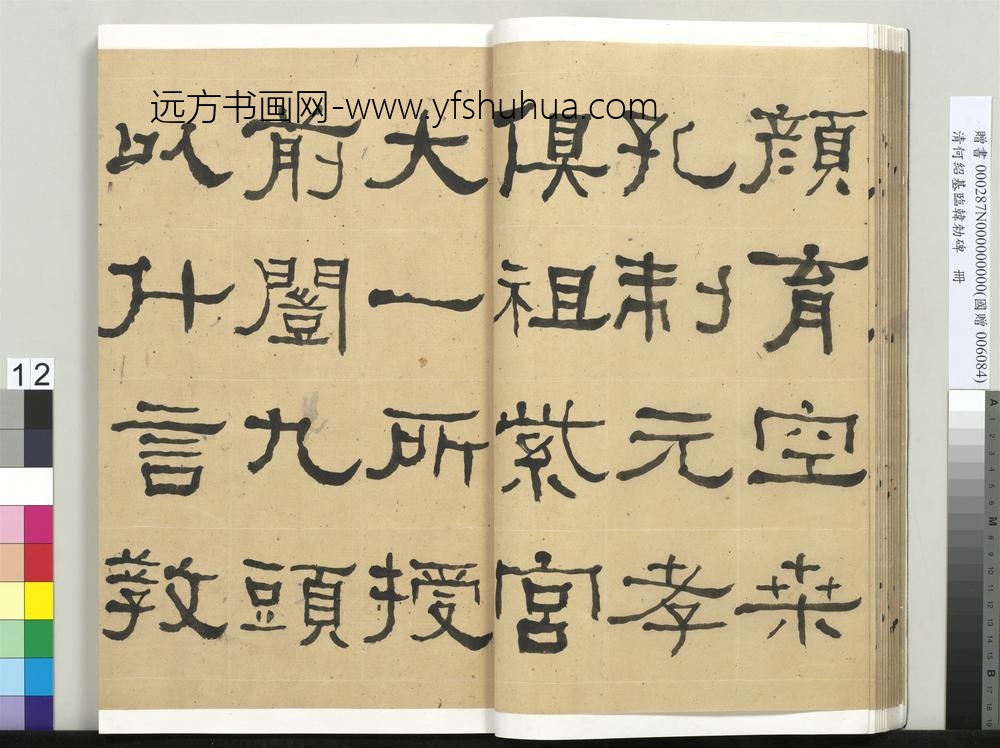 远方书画网-www.yfshuhua.com
顏育空桒
孔制元孝
俱祖紫宮
大一所授
前闓九頭
以什言教
贈書 000287N000000000(國贈 006084)
清何紹基臨韓勑碑 冊
12
A 1 2 3 4 5 6 M 8 9 10 11 12 13 14 15 B 17 18 19